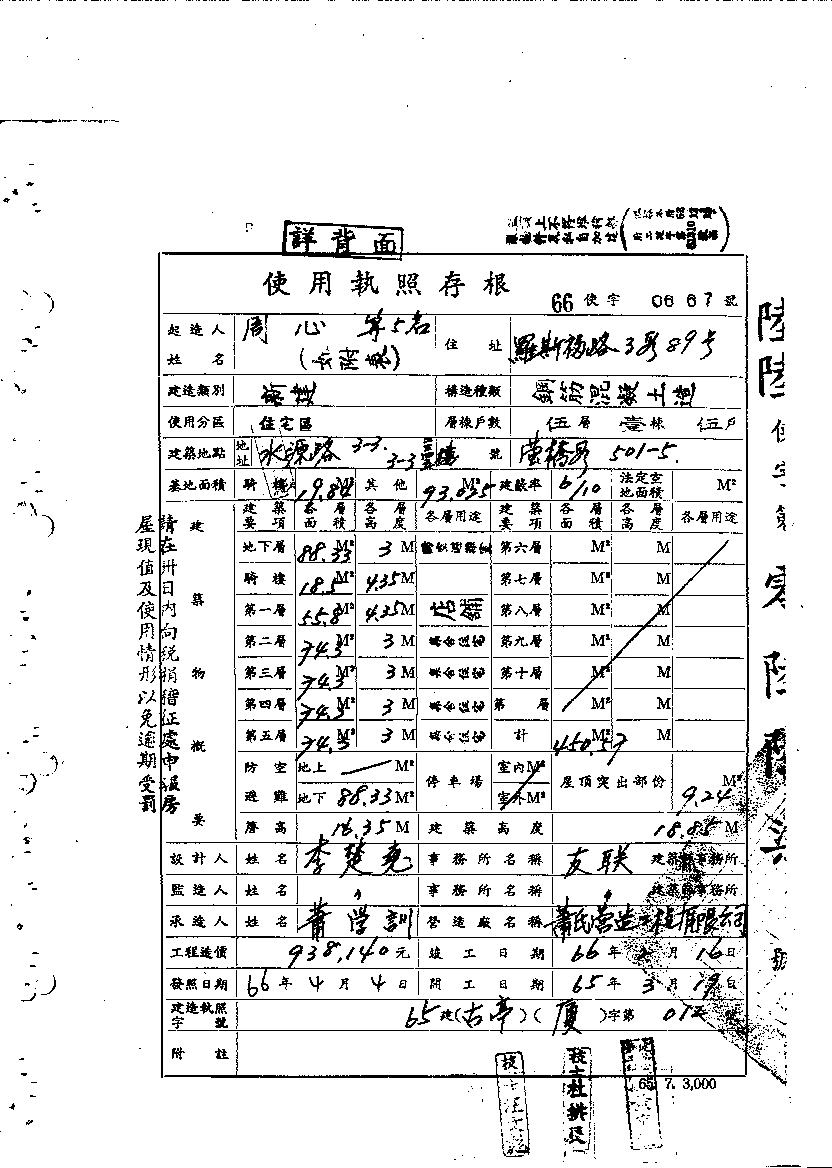 詳背面
使用執照存根
66 使字 0667 號
起造人姓名 周心 等5名
住址 羅斯福路3段89号
建造類別 新建 構造種類 鋼筋混凝土造
使用分區 住宅區 層棟戶數 伍層 壹棟 伍戶
建築地點 地址 水源路 3-3. 號
501-5.
基地面積 騎樓 19.84 M² 其他 93.035 M² 建蔽率 6/10 法定空地面積 M²
建築要項 各層面積 各層高度 各層用途 建築要項 各層面積 各層高度 各層用途
地下層 88.33 M² 3 M 第六層 M² M
騎樓 18.5 M² 4.35 M 第七層 M² M
第一層 55.8 M² 4.35 M 店舖 第八層 M² M
第二層 74.3 M² 3 M 集合住宅 第九層 M² M
第三層 74.3 M² 3 M 集合住宅 第十層 M² M
第四層 74.3 M² 3 M 集合住宅 第 層 M² M
第五層 74.3 M² 3 M 集合住宅 計 450.57 M² M
建築物概要
防空避難 地上 M² 停車場 室內 M² 屋頂突出部份 M²
地下 88.33 M² 室外 M² 9.24
簷高 16.35 M 建築高度 18.85 M
設計人 姓名 李楚堯 事務所名稱 友联 建築師事務所
監造人 姓名 〃 事務所名稱 〃 建築師事務所
承造人 姓名 蕭學訓 營造廠名稱 蕭氏營造工程有限公司
工程造價 938,140 元 竣工日期 66 年 月 16 日
發照日期 66 年 4 月 4 日 開工日期 65 年 3 月 19 日
建造執照字號 65 建(古亭)( )字第 012
附註
65. 7. 3,000
請在卅日內向稅捐稽征處申報房
屋現值及使用情形以免逾期受罰
陸陸使字第零陸
號